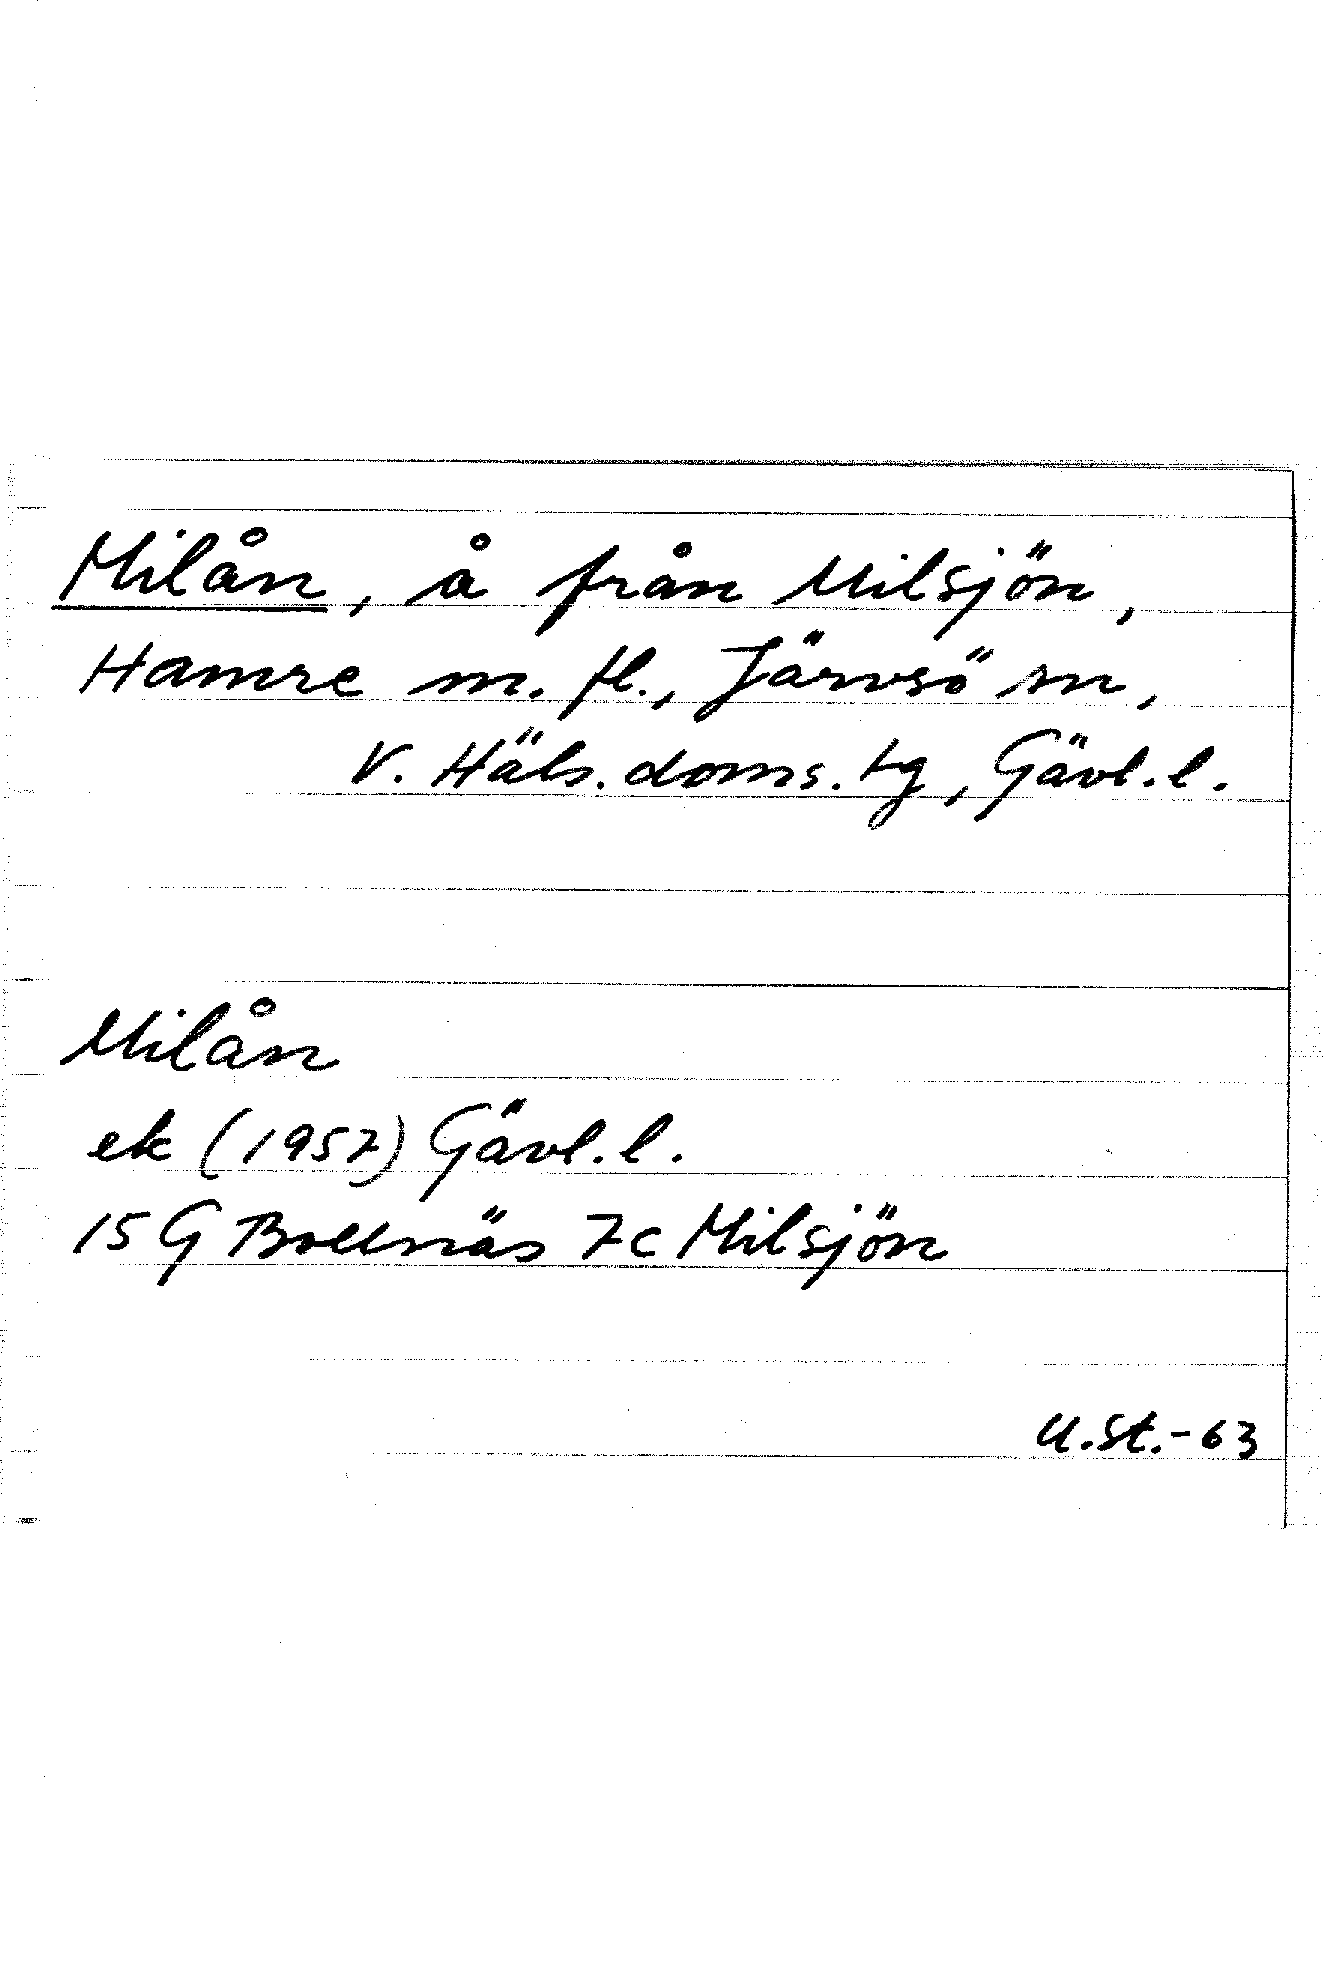 Milån, å från Milsjön,
Hamre m. fl., Järvsö sn,
V. Häls. doms. tg, Gävl. l.
Milån
ek (1957) Gävl. l.
15 G Bollnäs 7c Milsjön
U.St.-63